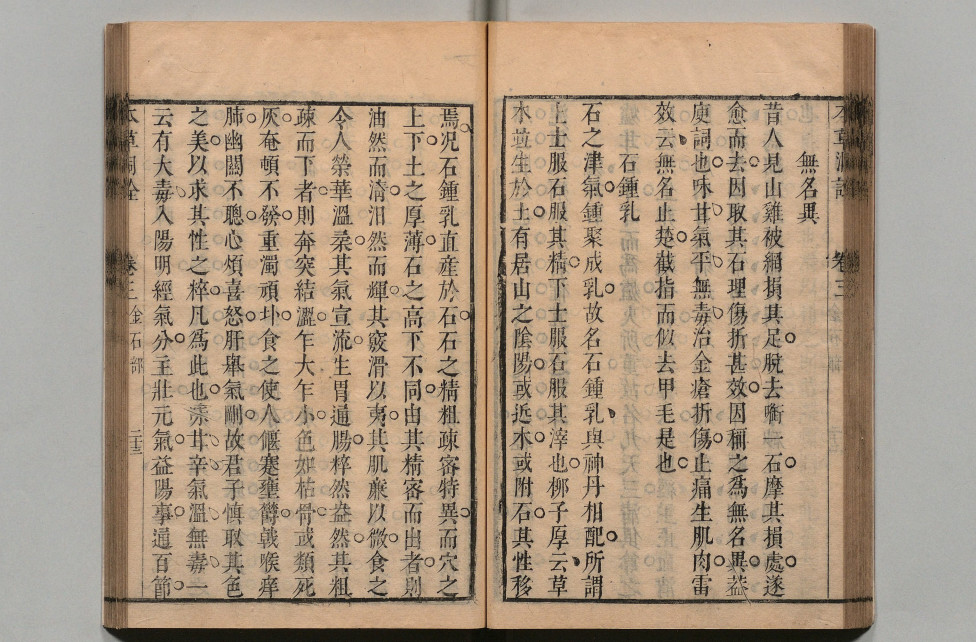 無名異
昔人見山雞被網損其足脫去啣一石摩其損處遂
愈而去因取其石理傷折甚效因稱之爲無名異葢
庾詞也味甘氣平無毒治金瘡折傷止痛生肌肉雷
效云無名止楚截指而似去甲毛是也
石鍾乳
石之津氣鍾聚成乳故名石鍾乳與神丹相配所謂
上士服石服其精下士服石服其滓也柳子厚云草
木竝生於土有居山之陰陽或近木或附石其性移
焉况石鍾乳直産於石石之精粗疎密特異而穴之
上下土之厚薄石之高下不同由其精密而出者則
油然而清汨然而輝其竅滑以夷其肌亷以微食之
令人榮華溫柔其氣宣流生胃通腸粹然盎然其粗
疎而下者則奔突結澀乍大乍小色如枯骨或類死
灰奄頓不發重濁頑圤食之使人偃蹇壅欝戟喉痒
肺幽關不聰心煩喜怒肝舉氣剛故君子慎取其色
之美以求其性之粹凡爲此也味甘辛氣溫無毒一
云有大毒入陽明經氣分主壯元氣益陽事通百節
本草洞詮 卷三 金石部 二十三